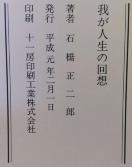 我が人生の回想
著者 石橋正二郎
発行 平成元年二月一日
印刷 十一房印刷工業株式会社